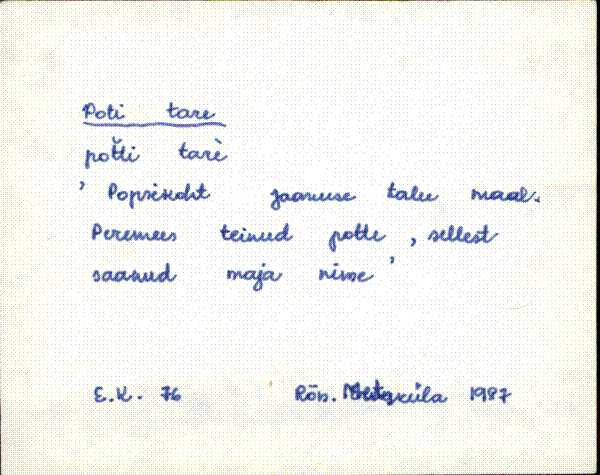 Poti tare
pot̆ti tarè
' Popsikoht Jaanuse talu maal.
Peremees teinud potte, sellest
saanud maja nime '
E.K. 76 Rõn. küla 1987